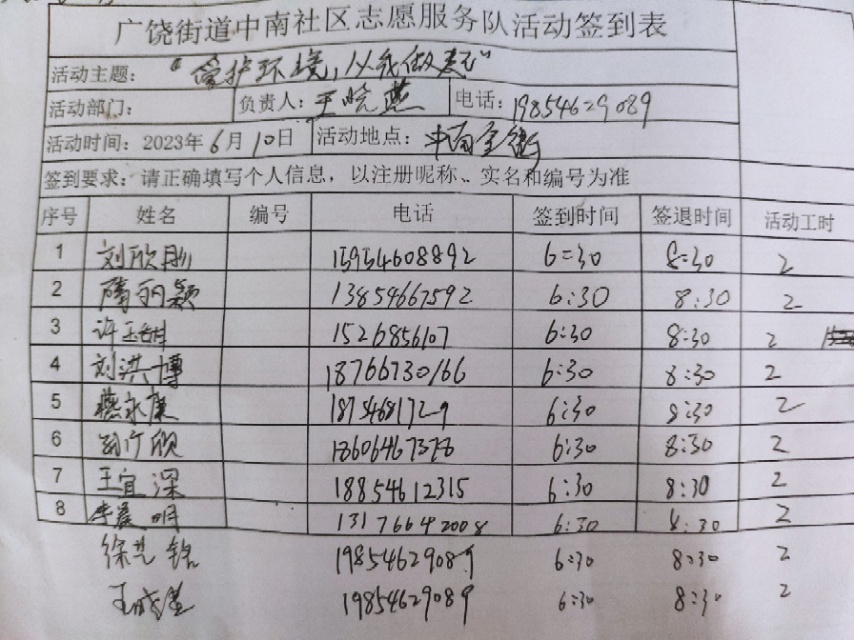 广饶街道中南社区志愿服务队活动签到表
活动主题："爱护环境,从我做起"
活动部门： 负责人：王晓燕 电话：19854629089
活动时间：2023年6月10日 活动地点：中南金街
签到要求：请正确填写个人信息，以注册昵称、实名和编号为准
序号 姓名 编号 电话 签到时间 签退时间 活动工时
1 刘欣彤 15954608892 6:30 8:30 2
2 隋丽颖 13854667592 6:30 8:30 2
3 许玉娟 1526856107 6:30 8:30 2
4 刘洪博 18766730166 6:30 8:30 2
5 蔡永康 18754681729 6:30 8:30 2
6 欣 6:30 8:30 2
7 王宜深 18854612315 6:30 8:30 2
8 李晨明 13176642008 6:30 8:30 2
徐艺铭 19854629089 6:30 8:30 2
王 19854629089 6:30 8:30 2